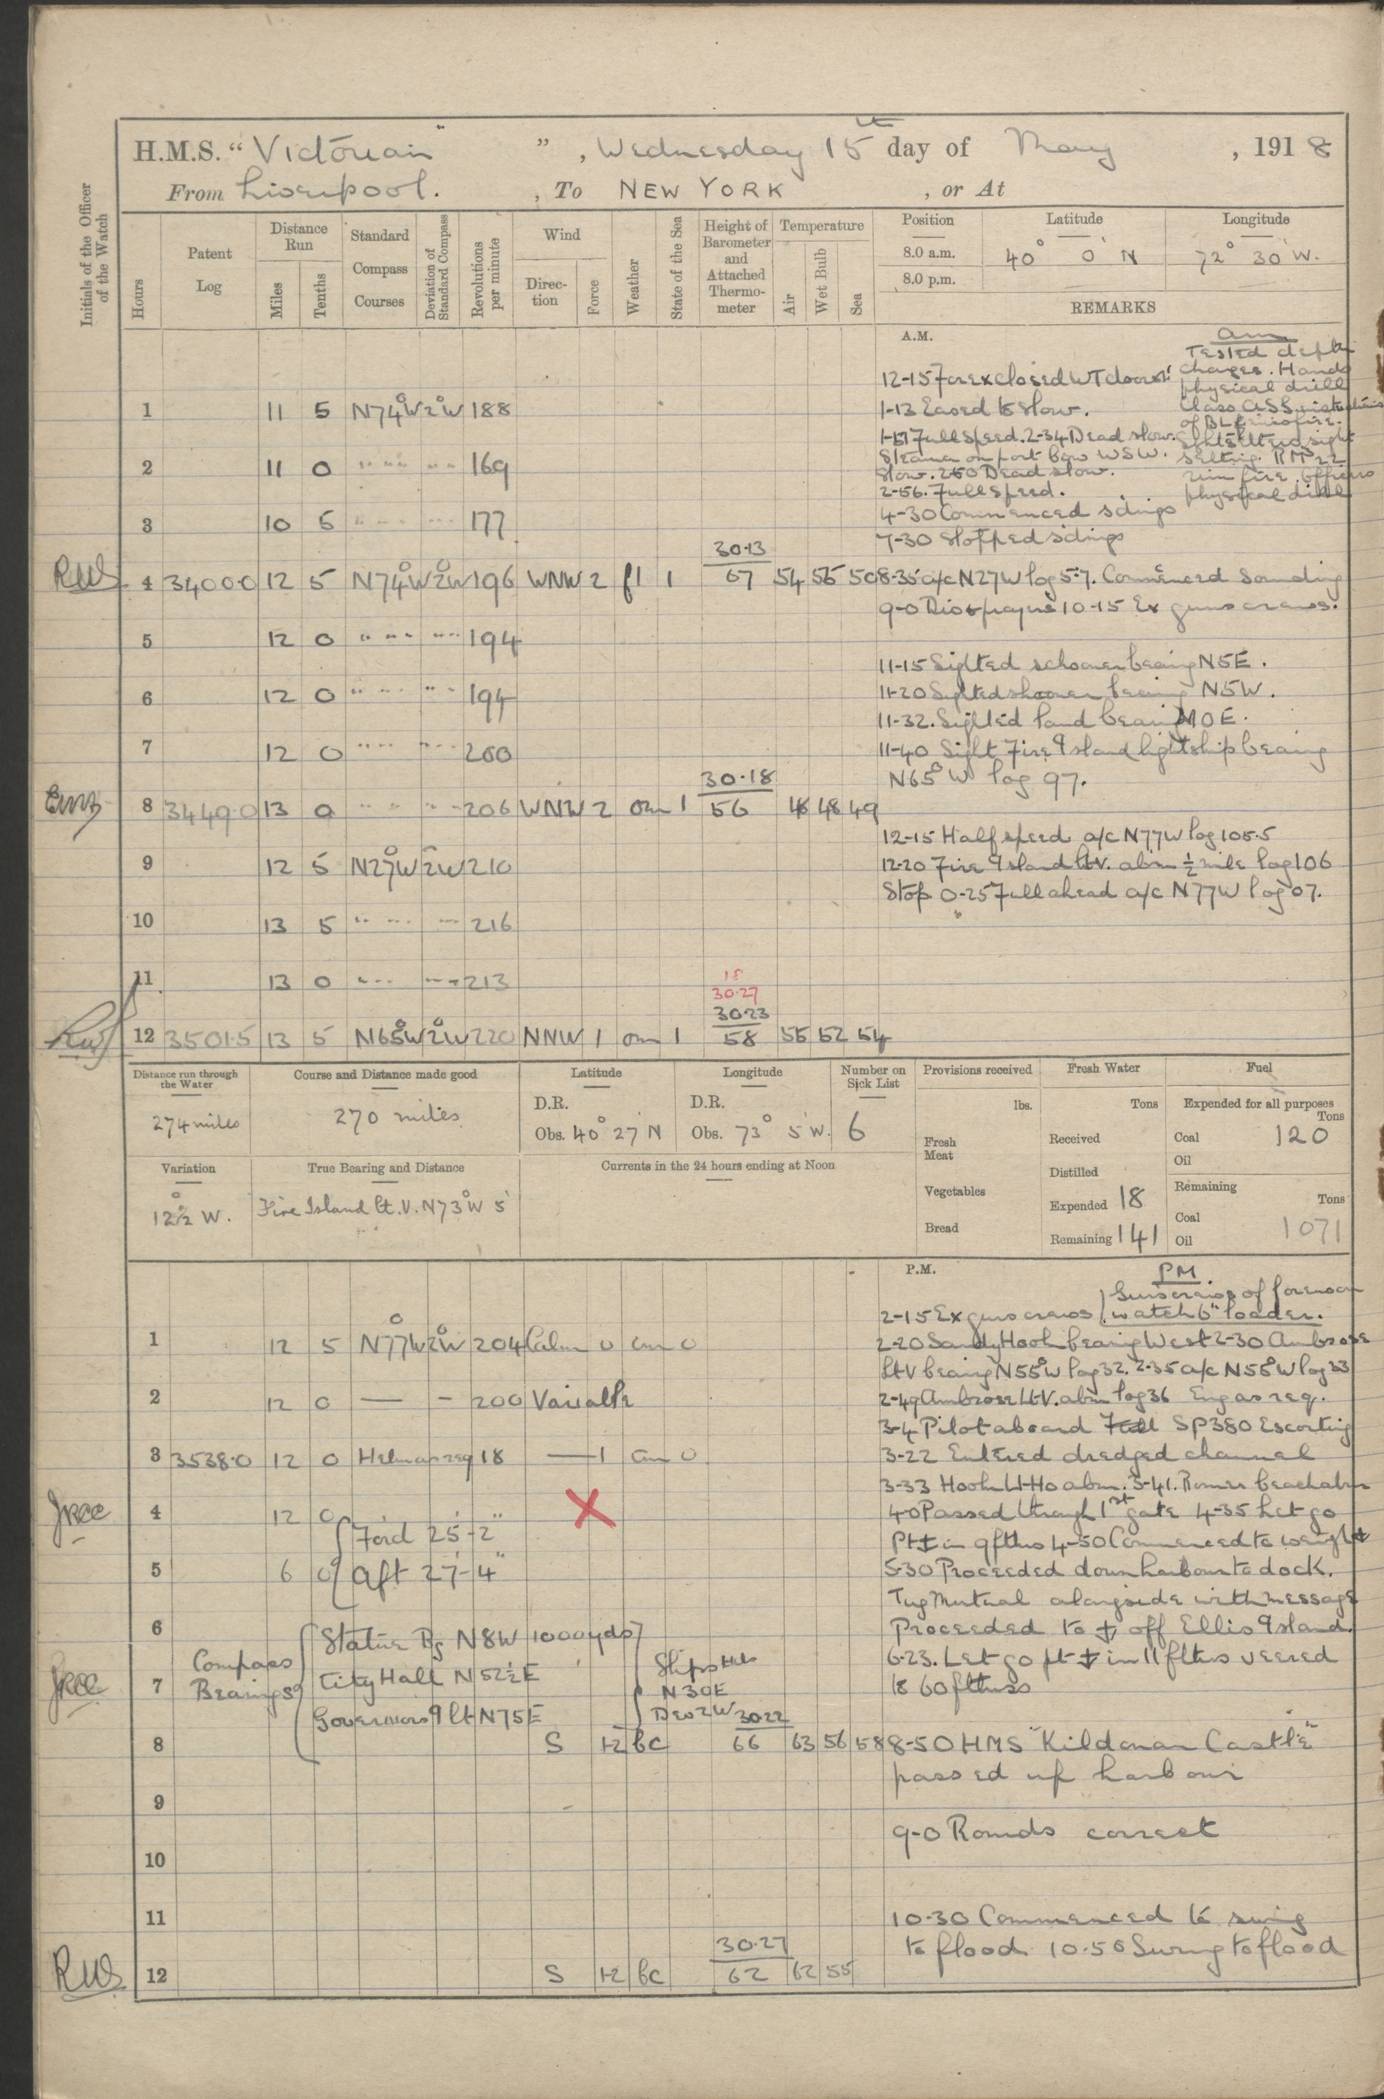 H.M.S. “Victorian” , Wednesday 15th day of May , 1918
From Liverpool. , To NEW YORK , or At
Initials of the Officer of the Watch
Hours
Patent Log
Distance Run
Miles
Tenths
Standard Compass Courses
Deviation of Standard Compass
Revolutions per minute
Wind
Direction
Force
Weather
State of the Sea
Height of Barometer and Attached Thermometer
Temperature
Air
Wet Bulb
Sea
Position Latitude Longitude
8.0 a.m. 40° 0' N 72° 30' W.
8.0 p.m.
REMARKS
A.M.
am
Tested depth
charges. Hands
physical drill
of BL
RM 22
rim fire. Officers
physical drill
12-15 closed WT doors
1-13 Eased to Slow.
Full Speed. 2-34 Dead slow.
Steamer on port bow WSW.
Slow. 2-50 Dead slow.
2-56. Full Speed.
4-30 Commenced
7-30 Stopped
1 11 5 N74°W 2°W 188
2 11 0 " " " " " 169
3 10 5 " " " " " 177
RWS 4 3400·0 12 5 N74°W 2°W 196 WNW 2 f1 1 30·13 67 54 55 50
8-35 a/c N27W log 57. Commenced Sounding
9-0 Divs prayers 10-15 Ex guns crews.
5 12 0 " " " " " 194
11-15 Sighted schooner bearing N5E.
6 12 0 " " " " " 194
11-20 Sighted schooner bearing N5W.
11-32. Sighted land bearing N10E.
7 12 0 " " " " " 200
11-40 Sight Fire Island lightship bearing
N65°W log 97.
8 3449·0 13 0 " " " " " 206 WNW 2 om 1 30·18 56 48 48 49
12-15 Half speed a/c N77W log 105.5
9 12 5 N27°W 2°W 210
12-20 Fire Island Lt V. abm ½ mile log 106
Stop 0-25 Full ahead a/c N77W log 07.
10 13 5 " " " " " 216
11 13 0 " " " " 213
18
30·27
12 3501·5 13 5 N65°W 2°W 220 NNW 1 om 1 30·23 58 55 52 54
Distance run through the Water
274 miles
Course and Distance made good
270 miles
Latitude
D.R.
Obs. 40° 27' N
Longitude
D.R.
Obs. 73° 5' W.
Number on Sick List
6
Provisions received
lbs.
Fresh Meat
Vegetables
Bread
Fresh Water
Tons
Received
Distilled
Expended 18
Remaining 141
Fuel
Expended for all purposes
Tons
Coal 120
Oil
Remaining
Tons
Coal 1071
Oil
Variation
12½° W.
True Bearing and Distance
Fire Island Lt. V. N73°W 5'
Currents in the 24 hours ending at Noon
P.M.
PM.
2-15 Ex guns crews (Guns crews of forenoon
watch 6" loader.
1 12 5 N77°W 2°W 204 Calm 0 om 0
2-20 Sandy Hook bearing West 2-30 Ambrose
Lt V bearing N55°W log 32. 2-35 a/c N55°W log 33
2 12 0 — - 200 Variable
2-49 Ambrose Lt V. abm log 36 Eng as req.
3-4 Pilot aboard SP380 Escorting
3 3538·0 12 0 Helm as req 18 — 1 om 0
3-22 Entered dredged channel
3-33 Hook Lt-Ho abm. 3-41. Romer beach abm
4 12 0 X
4-0 Passed through 1st gate 4-35 Let go
Pt ⚓ in 9 fths 4-50 Commenced to weigh ⚓
Ford 25'-2"
5 6 0 Aft 27'-4"
5-30 Proceeded down harbour to dock.
Tug Mutual alongside with message
6
Proceeded to ⚓ off Ellis Island.
Compass Bearings
Statue Bg N8W 1000 yds
City Hall N52½E
Governors I Lt N75E
Ships Hd
N30E
Dev 2W
7
6-23. Let go pt ⚓ in 11 fths veered
to 60 fthms
8 S 1-2 bc 30·22 66 63 56 58
8-50 HMS "Kildonan Castle"
passed up harbour
9
9-0 Rounds correct
10
11
10-30 Commenced to swing
to flood 10-50 Swung to flood
RWS 12 S 1-2 bc 30·27 62 62 55